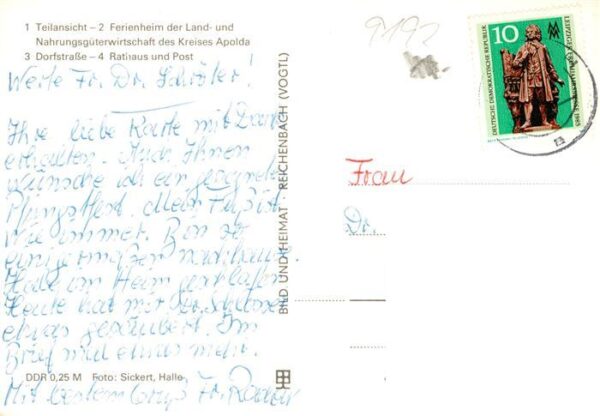 1 Teilansicht – 2 Ferienheim der Land- und
Nahrungsgüterwirtschaft des Kreises Apolda
3 Dorfstraße – 4 Rathaus und Post
Werte Fr. Dr. Schröter!
Ihre liebe Karte mit Dank
erhalten. Auch Ihnen
wünsche ich ein gesegnetes
Pfingstfest. Mein Fuß ist
wie immer. Bin so
einigermaßen
Habe im Heim
Heute hat mir
etwas gesäubert. Im
Brief mal etwas mehr.
DDR 0,25 M Foto: Sickert, Halle
Mit bestem Gruß Fr.
BILD UND HEIMAT REICHENBACH (VOGTL)
9192
10
DEUTSCHE DEMOKRATISCHE REPUBLIK
LEIPZIGER FRÜHJAHRSMESSE 1985
Frau
Dr.